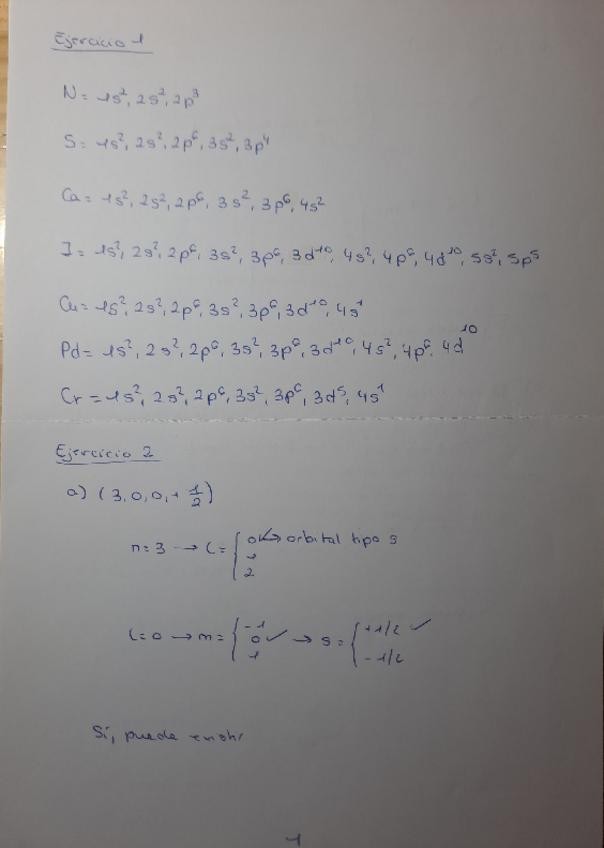 Ejercicio 1
N = 1s², 2s², 2p³
S = 1s², 2s², 2p⁶, 3s², 3p⁴
Ca = 1s², 2s², 2p⁶, 3s², 3p⁶, 4s²
I = 1s², 2s², 2p⁶, 3s², 3p⁶, 3d¹⁰, 4s², 4p⁶, 4d¹⁰, 5s², 5p⁵
Cu = 1s², 2s², 2p⁶, 3s², 3p⁶, 3d¹⁰, 4s¹
Pd = 1s², 2s², 2p⁶, 3s², 3p⁶, 3d¹⁰, 4s², 4p⁶, 4d¹⁰
Cr = 1s², 2s², 2p⁶, 3s², 3p⁶, 3d⁵, 4s¹
Ejercicio 2
a) (3, 0, 0, + 1/2)
n = 3 → l = { 0 ↔ orbital tipo s
1
2
l = 0 → m = { -1
0 ✓ → s = { +1/2 ✓
1
-1/2
Sí, puede
1